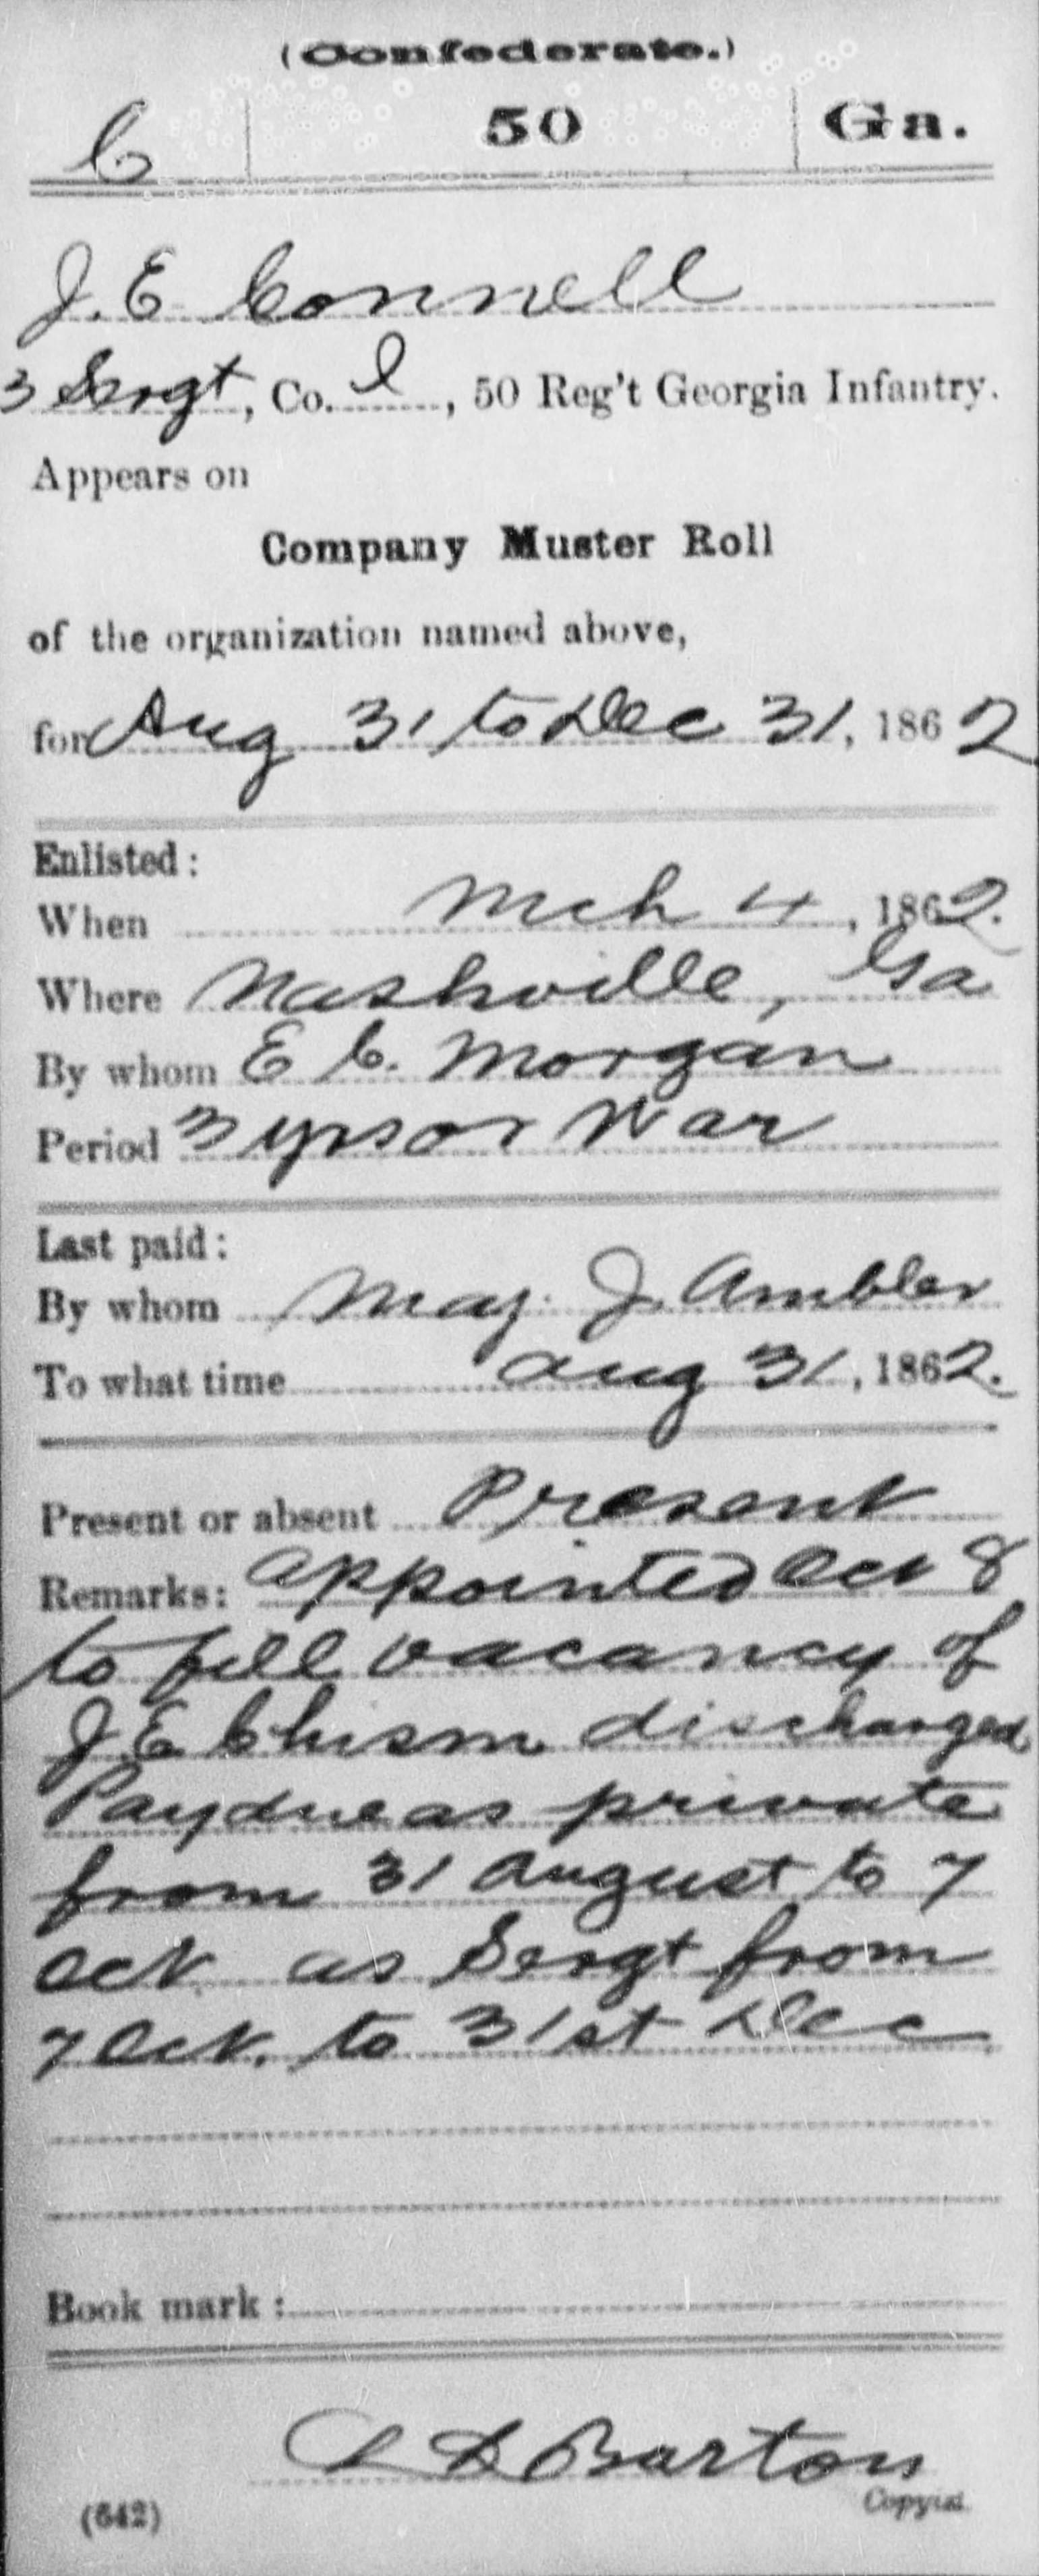 (Confederate.)
C 50 Ga.
J. E Connell
3 Sergt, Co. I, 50 Reg't Georgia Infantry.
Appears on
Company Muster Roll
of the organization named above,
for Aug 31 to Dec 31, 1862
Enlisted:
When Mch 4, 1862.
Where Nashville, Ga
By whom E C. Morgan
Period 3 yrs or War
Last paid:
By whom Maj. J. Ambler
To what time Aug 31, 1862.
Present or absent Present
Remarks: Appointed Oct 8
to fill vacancy of
J E Chism discharged
Pay due as private
from 31 August to 7
Oct as Sergt from
7 Oct. to 31st Dec
Book mark:
Barton
(642) Copyist.